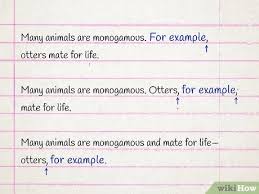 Many animals are monogamous. For example,
otters mate for life.
Many animals are monogamous. Otters, for example,
mate for life.
Many animals are monogamous and mate for life—
otters, for example.
wikiHow